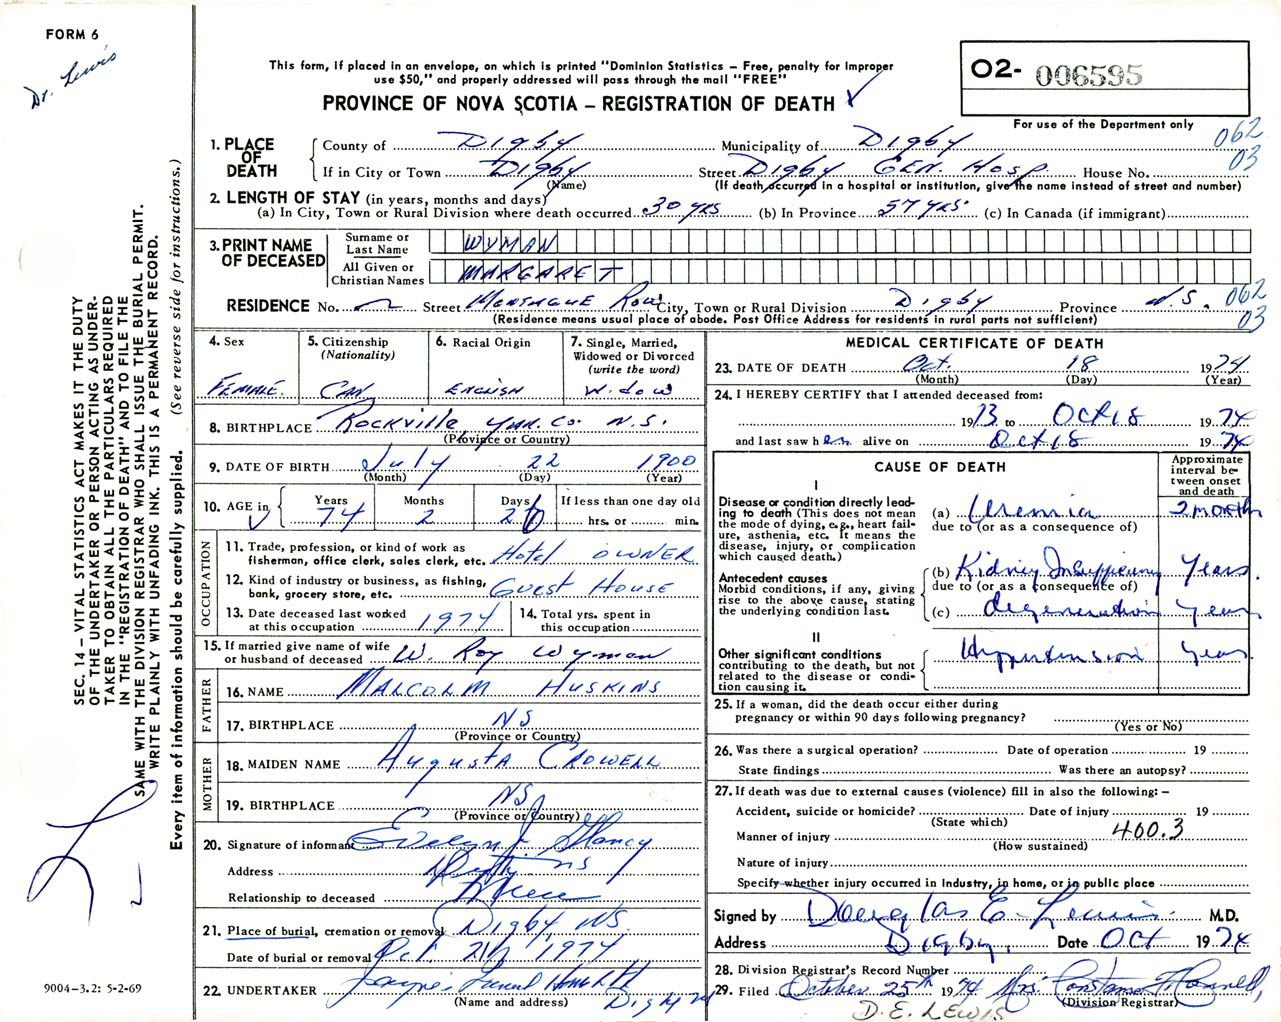 FORM 6
Dr. Lewis
This form, if placed in an envelope, on which is printed "Dominion Statistics – Free, penalty for improper
use $50," and properly addressed will pass through the mail "FREE"
PROVINCE OF NOVA SCOTIA – REGISTRATION OF DEATH
O2- 006595
For use of the Department only
062
03
1. PLACE OF DEATH
County of Digby Municipality of Digby
If in City or Town Digby Street Digby GEN. Hosp. House No.
(Name) (If death occurred in a hospital or institution, give the name instead of street and number)
2. LENGTH OF STAY (in years, months and days)
(a) In City, Town or Rural Division where death occurred 30 yrs (b) In Province 57 yrs. (c) In Canada (if immigrant)
3. PRINT NAME OF DECEASED
Surname or Last Name WYMAN
All Given or Christian Names MARGARET
RESIDENCE No. Street Montague Row City, Town or Rural Division Digby Province N.S.
(Residence means usual place of abode. Post Office Address for residents in rural parts not sufficient)
062
03
4. Sex FEMALE.
5. Citizenship (Nationality) CAN
6. Racial Origin ENGLISH
7. Single, Married, Widowed or Divorced (write the word) Widow
8. BIRTHPLACE Rockville, Yar. Co. N.S.
(Province or Country)
9. DATE OF BIRTH July 22 1900
(Month) (Day) (Year)
10. AGE in Years 74 Months 2 Days 26 If less than one day old hrs. or min.
OCCUPATION
11. Trade, profession, or kind of work as fisherman, office clerk, sales clerk, etc. Hotel OWNER
12. Kind of industry or business, as fishing, bank, grocery store, etc. Guest House
13. Date deceased last worked at this occupation 1974
14. Total yrs. spent in this occupation
15. If married give name of wife or husband of deceased W. Roy Wyman
FATHER
16. NAME MALCOLM HUSKINS
17. BIRTHPLACE NS
(Province or Country)
MOTHER
18. MAIDEN NAME Augusta CROWELL
19. BIRTHPLACE NS
(Province or Country)
20. Signature of informant Evelyn J.
Address NS
Relationship to deceased Niece
21. Place of burial, cremation or removal Digby, NS.
Date of burial or removal Oct. 21, 1974
22. UNDERTAKER Funeral Home Digby
(Name and address)
MEDICAL CERTIFICATE OF DEATH
23. DATE OF DEATH Oct. 18 1974
(Month) (Day) (Year)
24. I HEREBY CERTIFY that I attended deceased from:
1973 to Oct 18 1974
and last saw her alive on Oct 18 1974
CAUSE OF DEATH
Approximate interval between onset and death
I
Disease or condition directly leading to death (This does not mean the mode of dying, e.g., heart failure, asthenia, etc. It means the disease, injury, or complication which caused death.)
(a) Uremia 2 months
due to (or as a consequence of)
Antecedent causes
Morbid conditions, if any, giving rise to the above cause, stating the underlying condition last.
(b) Kidney Insufficiency Years.
due to (or as a consequence of)
(c) degeneration years
II
Other significant conditions
contributing to the death, but not related to the disease or condition causing it.
Hypertension years.
25. If a woman, did the death occur either during pregnancy or within 90 days following pregnancy?
(Yes or No)
26. Was there a surgical operation? Date of operation 19
State findings Was there an autopsy?
27. If death was due to external causes (violence) fill in also the following: –
Accident, suicide or homicide? Date of injury 19
(State which)
Manner of injury 400.3
(How sustained)
Nature of injury
Specify whether injury occurred in Industry, in home, or in public place
Signed by Douglas E. Lewis. M.D.
Address Digby. Date Oct 1974
28. Division Registrar's Record Number
29. Filed October 25th 1974 Mrs. Constance
(Division Registrar)
D. E. LEWIS
SEC. 14 – VITAL STATISTICS ACT MAKES IT THE DUTY
OF THE UNDERTAKER OR PERSON ACTING AS UNDER-
TAKER TO OBTAIN ALL THE PARTICULARS REQUIRED
IN THE "REGISTRATION OF DEATH" AND TO FILE THE
SAME WITH THE DIVISION REGISTRAR WHO SHALL ISSUE THE BURIAL PERMIT.
WRITE PLAINLY WITH UNFADING INK. THIS IS A PERMANENT RECORD.
Every item of information should be carefully supplied. (See reverse side for instructions.)
9004-3.2: 5-2-69